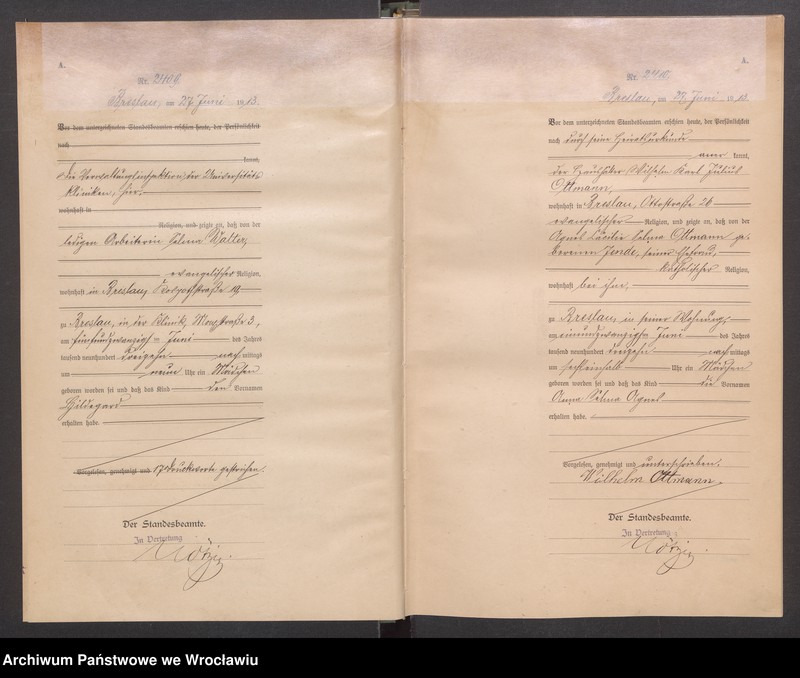 A.
Nr. 2409.
Breslau, am 27. Juni 1913.
Vor dem unterzeichneten Standesbeamten erschien heute, der Persönlichkeit
nach
kannt,
die Verwaltungsinspektion der Universitäts
Kliniken, hier.
wohnhaft in
Religion, und zeigte an, daß von der
ledigen Arbeiterin Selma Walter,
evangelischer Religion,
wohnhaft in Breslau, 19
zu Breslau, in der Klinik, Maxstraße 3,
am fünfundzwanzigsten Juni des Jahres
tausend neunhundert dreizehn nachmittags
um neun Uhr ein Mädchen
geboren worden sei und daß das Kind den Vornamen
Hildegard
erhalten habe.
Vorgelesen, genehmigt und 17 Druckworte gestrichen.
Der Standesbeamte.
In Vertretung
A.
Nr. 2410.
Breslau, am 27. Juni 1913.
Vor dem unterzeichneten Standesbeamten erschien heute, der Persönlichkeit
nach durch seine Heiratsurkunde
aner kannt,
der Haushälter Wilhelm Karl Julius
Ottmann,
wohnhaft in Breslau, Ottostraße 26
evangelischer Religion, und zeigte an, daß von der
Agnes Cäcilie Selma Ottmann ge-
borenen Jende, seiner Ehefrau,
katholischer Religion,
wohnhaft bei ihm,
zu Breslau, in seiner Wohnung,
am einundzwanzigsten Juni des Jahres
tausend neunhundert dreizehn nachmittags
um sechseinhalb Uhr ein Mädchen
geboren worden sei und daß das Kind die Vornamen
Anna Selma Agnes
erhalten habe.
Vorgelesen, genehmigt und unterschrieben.
Wilhelm Ottmann.
Der Standesbeamte.
In Vertretung
Archiwum Państwowe we Wrocławiu